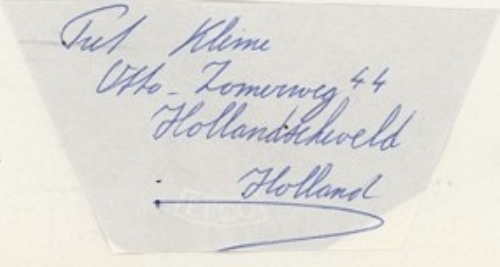 Piet Kleine
Otto-Zomerweg 44
Hollandscheveld
Holland